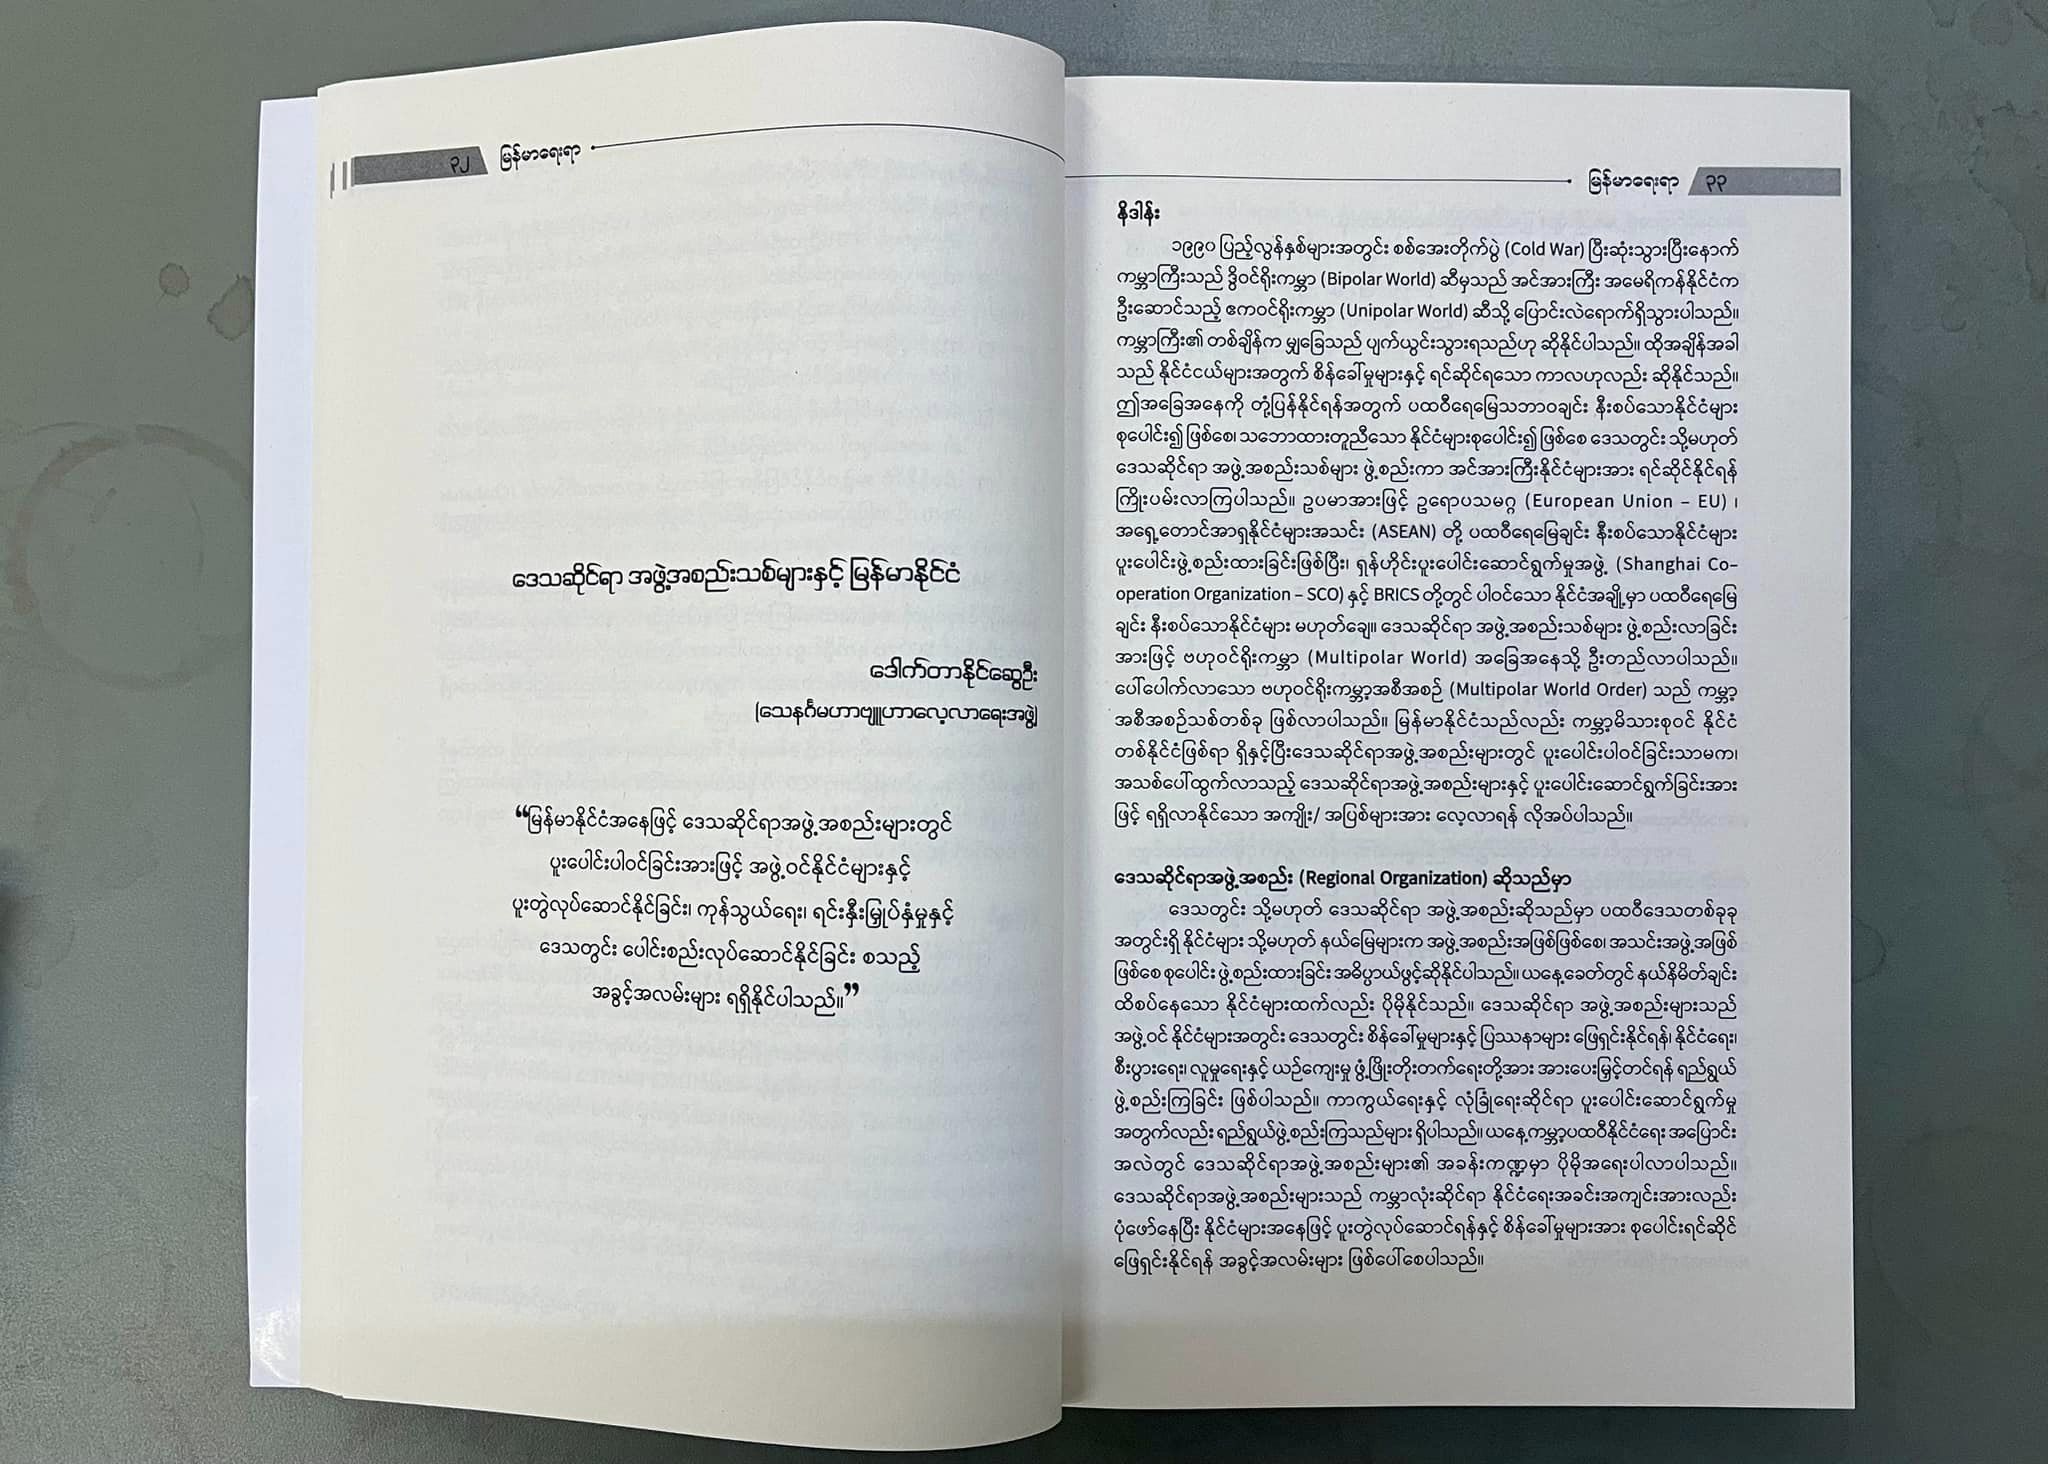 ၃၂ မြန်မာရေးရာ
ဒေသဆိုင်ရာ အဖွဲ့အစည်းသစ်များနှင့် မြန်မာနိုင်ငံ
ဒေါက်တာနိုင်ဆွေဦး
(သေနင်္ဂမဟာဗျူဟာလေ့လာရေးအဖွဲ့)
“မြန်မာနိုင်ငံအနေဖြင့် ဒေသဆိုင်ရာအဖွဲ့အစည်းများတွင်
ပူးပေါင်းပါဝင်ခြင်းအားဖြင့် အဖွဲ့ဝင်နိုင်ငံများနှင့်
ပူးတွဲလုပ်ဆောင်နိုင်ခြင်း၊ ကုန်သွယ်ရေး၊ ရင်းနှီးမြှုပ်နှံမှုနှင့်
ဒေသတွင်း ပေါင်းစည်းလုပ်ဆောင်နိုင်ခြင်း စသည့်
အခွင့်အလမ်းများ ရရှိနိုင်ပါသည်။”
မြန်မာရေးရာ ၃၃
နိဒါန်း
၁၉၉၀ ပြည့်လွန်နှစ်များအတွင်း စစ်အေးတိုက်ပွဲ (Cold War) ပြီးဆုံးသွားပြီးနောက်
ကမ္ဘာကြီးသည် ဒွိဝင်ရိုးကမ္ဘာ (Bipolar World) ဆီမှသည် အင်အားကြီး အမေရိကန်နိုင်ငံက
ဦးဆောင်သည့် ဧကဝင်ရိုးကမ္ဘာ (Unipolar World) ဆီသို့ ပြောင်းလဲရောက်ရှိသွားပါသည်။
ကမ္ဘာကြီး၏ တစ်ချိန်က မျှခြေသည် ပျက်ယွင်းသွားရသည်ဟု ဆိုနိုင်ပါသည်။ ထိုအချိန်အခါ
သည် နိုင်ငံငယ်များအတွက် စိန်ခေါ်မှုများနှင့် ရင်ဆိုင်ရသော ကာလဟုလည်း ဆိုနိုင်သည်။
ဤအခြေအနေကို တုံ့ပြန်နိုင်ရန်အတွက် ပထဝီရေမြေသဘာဝချင်း နီးစပ်သောနိုင်ငံများ
စုပေါင်း၍ ဖြစ်စေ၊ သဘောထားတူညီသော နိုင်ငံများစုပေါင်း၍ ဖြစ်စေ ဒေသတွင်း သို့မဟုတ်
ဒေသဆိုင်ရာ အဖွဲ့အစည်းသစ်များ ဖွဲ့စည်းကာ အင်အားကြီးနိုင်ငံများအား ရင်ဆိုင်နိုင်ရန်
ကြိုးပမ်းလာကြပါသည်။ ဥပမာအားဖြင့် ဥရောပသမဂ္ဂ (European Union – EU) ၊
အရှေ့တောင်အာရှနိုင်ငံများအသင်း (ASEAN) တို့ ပထဝီရေမြေချင်း နီးစပ်သောနိုင်ငံများ
ပူးပေါင်းဖွဲ့စည်းထားခြင်းဖြစ်ပြီး၊ ရှန်ဟိုင်းပူးပေါင်းဆောင်ရွက်မှုအဖွဲ့ (Shanghai Co–
operation Organization – SCO) နှင့် BRICS တို့တွင် ပါဝင်သော နိုင်ငံအချို့မှာ ပထဝီရေမြေ
ချင်း နီးစပ်သောနိုင်ငံများ မဟုတ်ချေ။ ဒေသဆိုင်ရာ အဖွဲ့အစည်းသစ်များ ဖွဲ့စည်းလာခြင်း
အားဖြင့် ဗဟုဝင်ရိုးကမ္ဘာ (Multipolar World) အခြေအနေသို့ ဦးတည်လာပါသည်။
ပေါ်ပေါက်လာသော ဗဟုဝင်ရိုးကမ္ဘာ့အစီအစဉ် (Multipolar World Order) သည် ကမ္ဘာ့
အစီအစဉ်သစ်တစ်ခု ဖြစ်လာပါသည်။ မြန်မာနိုင်ငံသည်လည်း ကမ္ဘာ့မိသားစုဝင် နိုင်ငံ
တစ်နိုင်ငံဖြစ်ရာ ရှိနှင့်ပြီးဒေသဆိုင်ရာအဖွဲ့အစည်းများတွင် ပူးပေါင်းပါဝင်ခြင်းသာမက၊
အသစ်ပေါ်ထွက်လာသည့် ဒေသဆိုင်ရာအဖွဲ့အစည်းများနှင့် ပူးပေါင်းဆောင်ရွက်ခြင်းအား
ဖြင့် ရရှိလာနိုင်သော အကျိုး/ အပြစ်များအား လေ့လာရန် လိုအပ်ပါသည်။
ဒေသဆိုင်ရာအဖွဲ့အစည်း (Regional Organization) ဆိုသည်မှာ
ဒေသတွင်း သို့မဟုတ် ဒေသဆိုင်ရာ အဖွဲ့အစည်းဆိုသည်မှာ ပထဝီဒေသတစ်ခုခု
အတွင်းရှိ နိုင်ငံများ သို့မဟုတ် နယ်မြေများက အဖွဲ့အစည်းအဖြစ်ဖြစ်စေ၊ အသင်းအဖွဲ့အဖြစ်
ဖြစ်စေ စုပေါင်းဖွဲ့စည်းထားခြင်း အဓိပ္ပာယ်ဖွင့်ဆိုနိုင်ပါသည်။ ယနေ့ခေတ်တွင် နယ်နိမိတ်ချင်း
ထိစပ်နေသော နိုင်ငံများထက်လည်း ပိုမိုနိုင်သည်။ ဒေသဆိုင်ရာ အဖွဲ့အစည်းများသည်
အဖွဲ့ဝင် နိုင်ငံများအတွင်း ဒေသတွင်း စိန်ခေါ်မှုများနှင့် ပြဿနာများ ဖြေရှင်းနိုင်ရန်၊ နိုင်ငံရေး၊
စီးပွားရေး၊ လူမှုရေးနှင့် ယဉ်ကျေးမှု ဖွံ့ဖြိုးတိုးတက်ရေးတို့အား အားပေးမြှင့်တင်ရန် ရည်ရွယ်
ဖွဲ့စည်းကြခြင်း ဖြစ်ပါသည်။ ကာကွယ်ရေးနှင့် လုံခြုံရေးဆိုင်ရာ ပူးပေါင်းဆောင်ရွက်မှု
အတွက်လည်း ရည်ရွယ်ဖွဲ့စည်းကြသည်များ ရှိပါသည်။ ယနေ့ကမ္ဘာ့ပထဝီနိုင်ငံရေး အပြောင်း
အလဲတွင် ဒေသဆိုင်ရာအဖွဲ့အစည်းများ၏ အခန်းကဏ္ဍမှာ ပိုမိုအရေးပါလာပါသည်။
ဒေသဆိုင်ရာအဖွဲ့အစည်းများသည် ကမ္ဘာလုံးဆိုင်ရာ နိုင်ငံရေးအခင်းအကျင်းအားလည်း
ပုံဖော်နေပြီး နိုင်ငံများအနေဖြင့် ပူးတွဲလုပ်ဆောင်ရန်နှင့် စိန်ခေါ်မှုများအား စုပေါင်းရင်ဆိုင်
ဖြေရှင်းနိုင်ရန် အခွင့်အလမ်းများ ဖြစ်ပေါ်စေပါသည်။